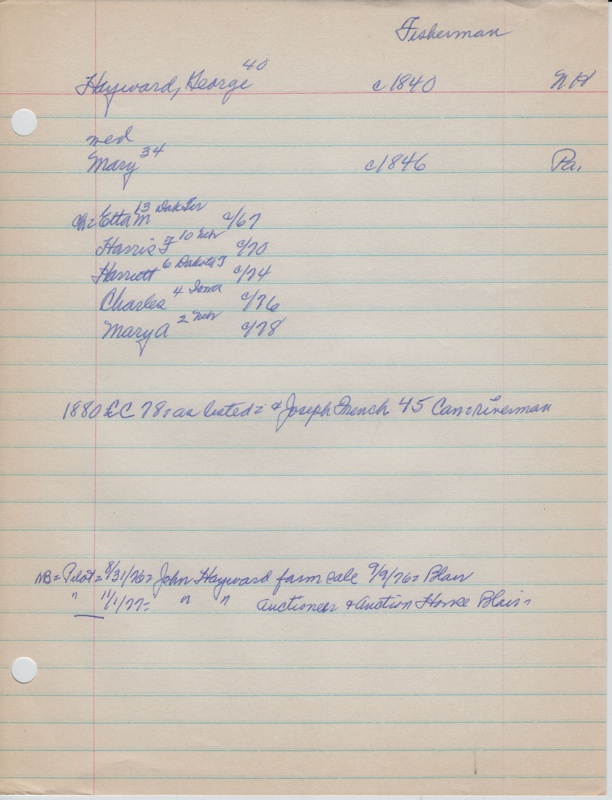 Fisherman
Hayward, George 40 c1840 NH
wed
Mary 34 c1846 Pa.
Ch: Etta M 13 Dak Ter c/67
Harris F 10 Nebr c/70
Harriett 6 Dakota T c/74
Charles 4 Iowa c/76
Mary A 2 Nebr c/78
1880 EC 78: as listed: & Joseph French 45 Can: riverman
NB= Pilot= 8/31/76= John Hayward farm sale 9/9/76= Blair
" 11/1/77= " " auctioneer & Auction House Blair=